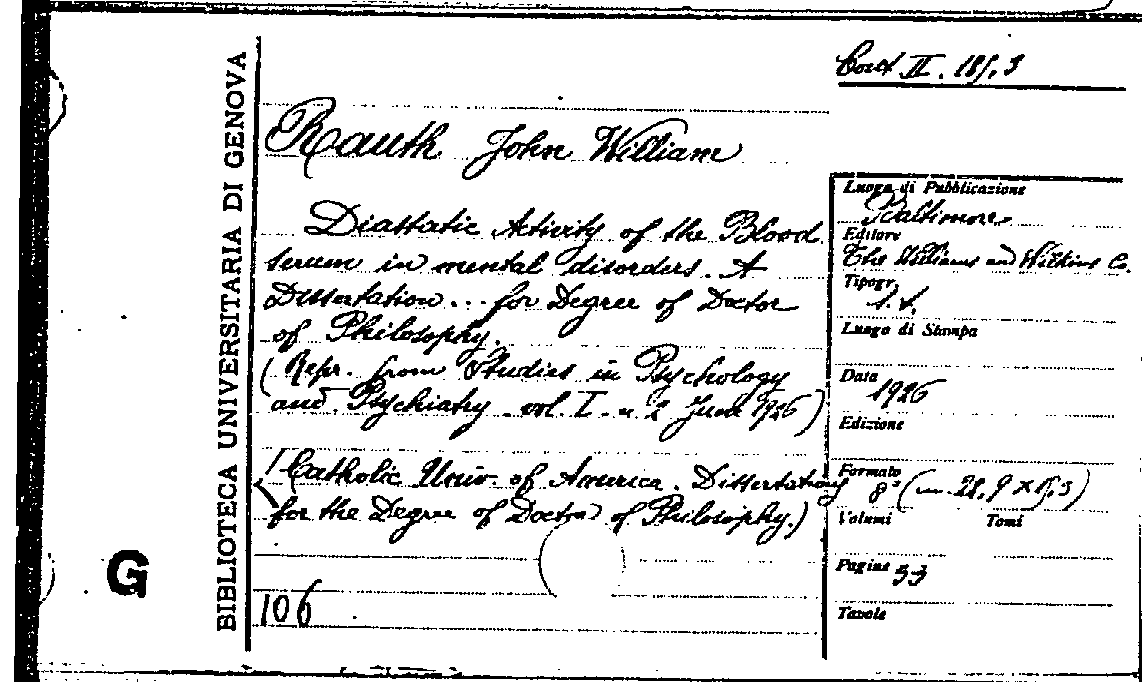 BIBLIOTECA UNIVERSITARIA DI GENOVA
G
II. 185,3
Rauth John William
Diastatic Activity of the Blood
serum in mental disorders. A
Dissertation... for Degree of Doctor
of Philosophy.
(Repr. from Studies in Psychology
and Psychiatry. vol. I. n. 2 June 1926)
(Catholic Univ. of America. Dissertations
for the Degree of Doctor of Philosophy.)
106
Luogo di Pubblicazione
Baltimore
Editore
The Williams and Wilkins Co.
Tipogr.
s. t.
Luogo di Stampa
Data
1926
Edizione
Formato
8° (cm.
Volumi Tomi
Pagine 53
Tavole